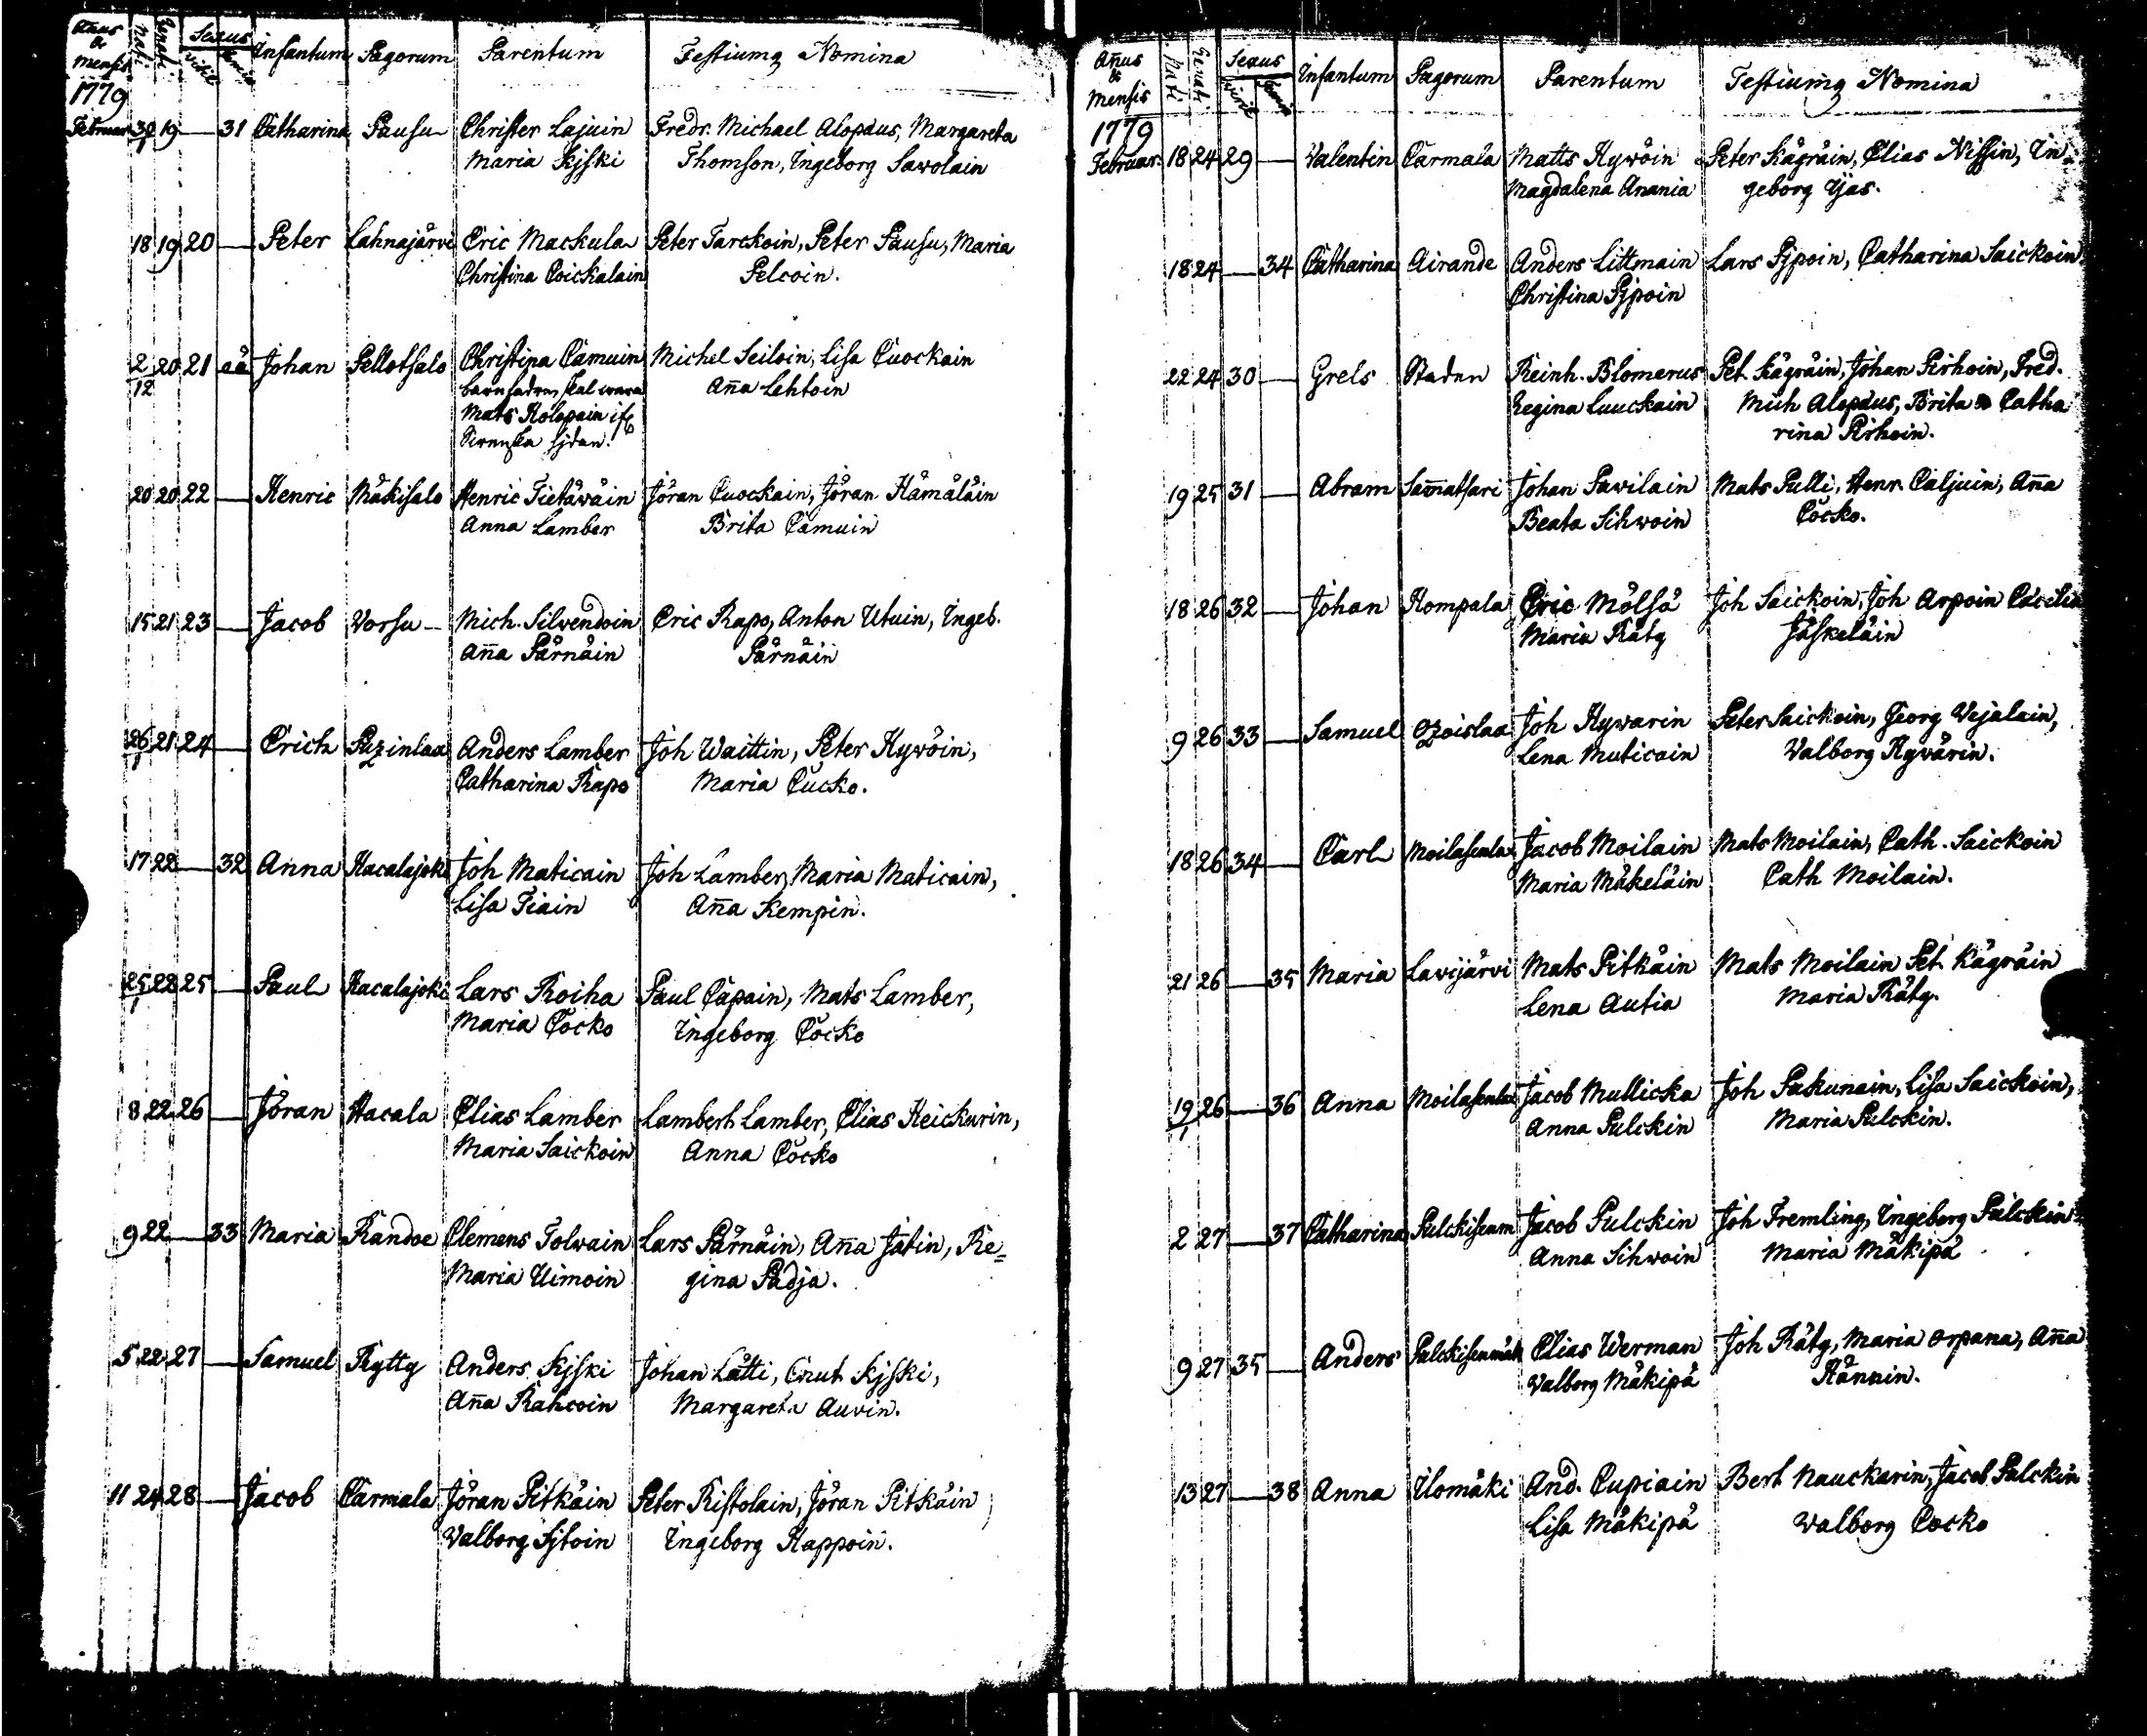 Añus & Mensis Nati Renati Sexus viril femin Infantum Pagorum Parentum Testiumq Nomina
1779
Februar 30/1 19 — 31 Catharina Pausu Christer Lajuin Fredr. Michael Alopæus, Margareta
Maria Kjski Thomson, Ingeborg Sawolain
18 19 20 — Peter Lahnajärvi Eric Mackula Peter Tarckoin, Peter Pausu, Maria
Christina Coickalain Pelcoin.
2/12 20 21 oä Johan Pellotsalo Christina Camuin Michel Seiloin, Lisa Cuockain
barnfadren skal wara Aña Lehtoin
Mats Kolopain if
Swenska sjdan.
20 20 22 — Henric Mäkisalo Henric Tietäwäin Jöran Cuockain, Jöran Hämäläin
Anna Lamber Brita Camuin
15 21 23 — Jacob Vorsu Mich. Silvendoin Eric Rapo, Anton Utuin, Ingeb.
Aña Pärnäin Pärnäin
26/1 21 24 — Erich Puzinlax Anders Lamber Joh Waittin, Peter Hywöin,
Catharina Rapo Maria Cucko.
17 22 — 32 Anna Hacalajoki Joh Maticain Joh Lamber, Maria Maticain,
Lisa Tiain Aña Kempin.
25/1 22 25 — Paul Hacalajoki Lars Roiha Paul Cäpain, Mats Lamber,
Maria Cocko Ingeborg Cocko
8 22 26 — Jöran Hacala Elias Lamber Lambert Lamber, Elias Heickurin,
Maria Saickoin Anna Cocko
9 22 — 33 Maria Randoe Clemens Tolwain Lars Pärnäin, Aña Jätin, Re=
Maria Uimoin gina Padja.
5 22 27 — Samuel Rytty Anders Kjski Johan Lätti, Cnut Kjski,
Aña Rahcoin Margareta Auvin.
11 24 28 — Jacob Carmala Jöran Pitkäin Peter Ristolain, Jöran Pitkäin,
Valborg Sjtoin Ingeborg Happoin.
Añus & Mensis Nati Renati Sexus viril femin Infantum Pagorum Parentum Testiumq Nomina
1779
Februar. 18 24 29 — Valentin Carmala Matts Hywöin Peter Kägräin, Elias Nissin, In=
Magdalena Anania geborg Ijäs.
18 24 — 34 Catharina Airande Anders Littmain Lars Pjpoin, Catharina Saickoin
Christina Pjpoin
22 24 30 — Grels Staden Reinh. Blomerus Pet. Kägräin, Johan Pirhoin, Fred.
Regina Luuckain Mich Alopæus, Brita Catha
rina Pirhoin.
19 25 31 — Abram Sam̄atsari Johan Pawilain Mats Pulli, Henr. Caljuin, Aña
Beata Sihwoin Cocko.
18 26 32 — Johan Hompala Eric Mölsä Joh Saickoin, Joh Arpoin Cæcilia
Maria Räty Jäskeläin
9 26 33 — Samuel Ozoislax Joh Hywarin Peter Saickoin, Georg Vejalain,
Lena Muticain Valborg Hyvärin.
18 26 34 — Carl Moilasenlax Jacob Moilain Mats Moilain, Cath. Saickoin
Maria Mäkeläin Cath Moilain.
21 26 — 35 Maria Lavijärvi Mats Pitkäin Mats Moilain Pet. Kägräin
Lena Autia Maria Räty.
19/1 26 — 36 Anna Moilasenlax Jacob Mullicka Joh Pakunain, Lisa Saickoin,
Anna Pulckin Maria Pulckin.
2 27 — 37 Catharina Jacob Pulckin Joh Tremling, Ingeborg Pulckin
Anna Sihwoin Maria Mäkipä
9 27 35 — Anders Elias Werman Joh Räty, Maria Orpana, Aña
Valborg Mäkipä Hännin.
13 27 — 38 Anna Ilomäki And. Cupiain Bert Nauckarin, Jacob Pulckin
Lisa Mäkipä Walborg Cocko